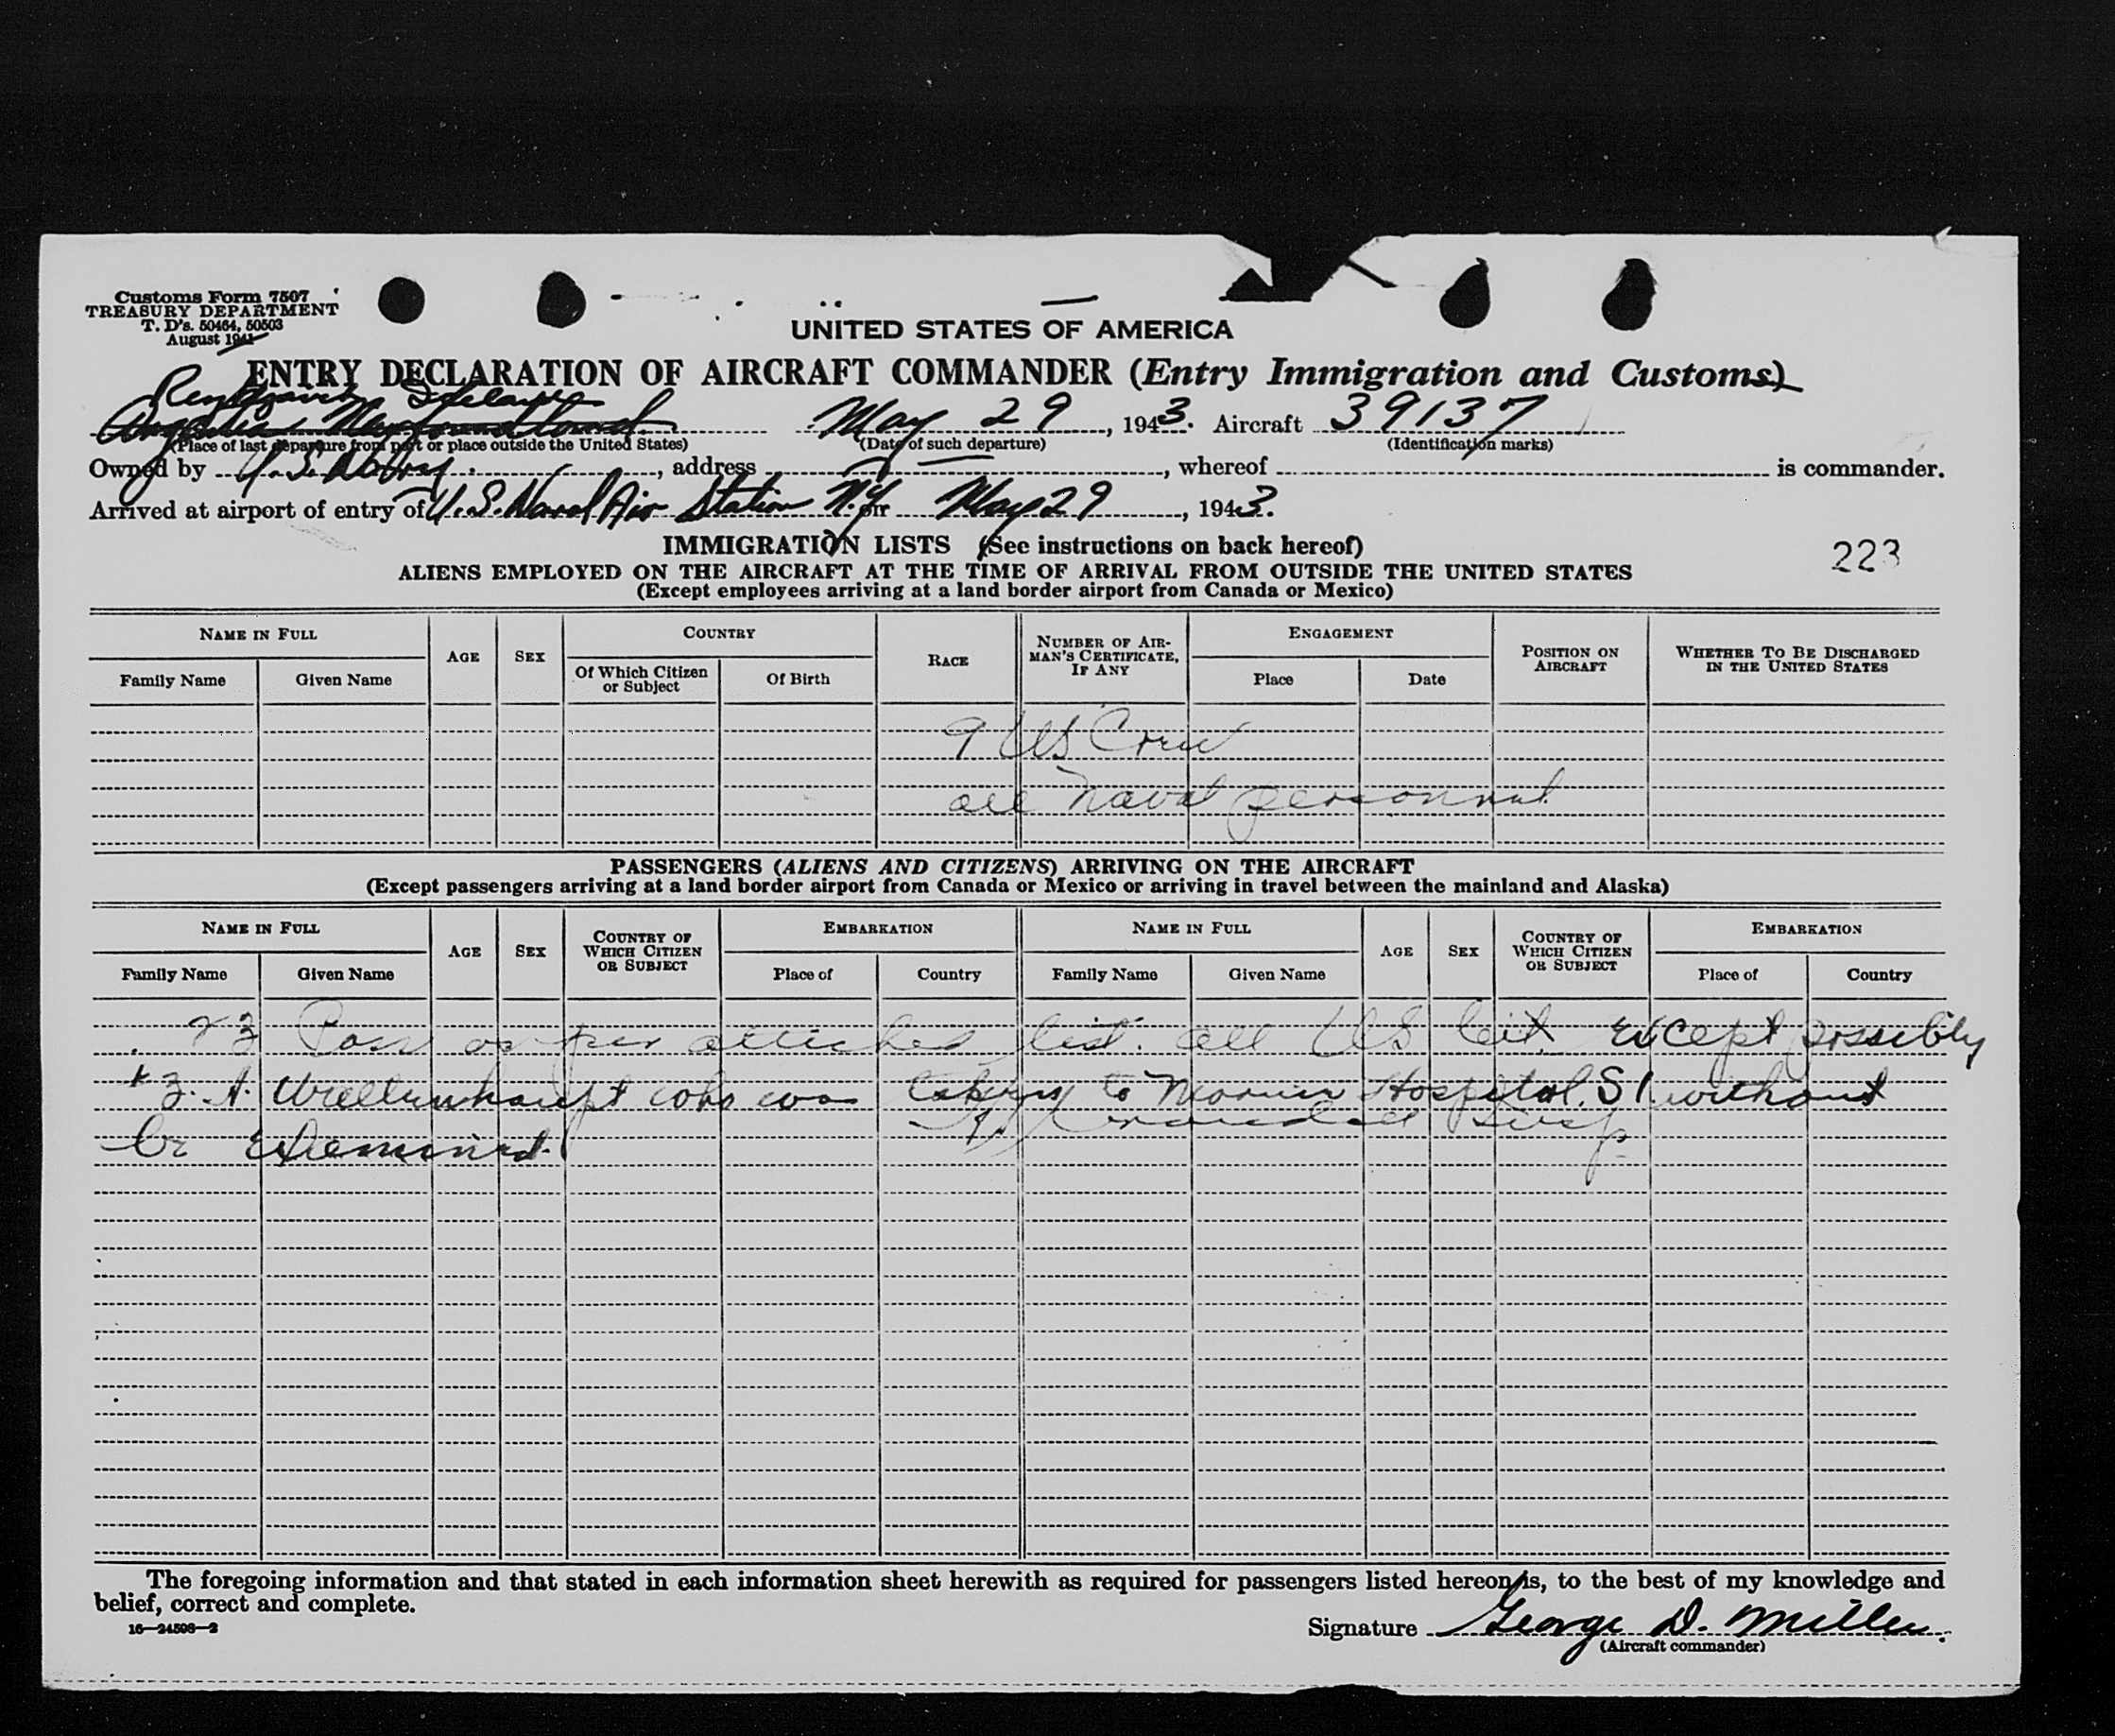 Customs Form 7507
TREASURY DEPARTMENT
T. D's. 50464, 50503
August 1941
UNITED STATES OF AMERICA
ENTRY DECLARATION OF AIRCRAFT COMMANDER (Entry Immigration and Customs)
Argentia, Newfoundland May 29, 1943. Aircraft 39137
(Place of last departure from port or place outside the United States) (Date of such departure) (Identification marks)
Owned by U. S. Navy, address , whereof is commander.
Arrived at airport of entry of U. S. Naval Air Station N.Y. on May 29, 1943.
IMMIGRATION LISTS (See instructions on back hereof)
223
ALIENS EMPLOYED ON THE AIRCRAFT AT THE TIME OF ARRIVAL FROM OUTSIDE THE UNITED STATES
(Except employees arriving at a land border airport from Canada or Mexico)
NAME IN FULL AGE SEX COUNTRY RACE NUMBER OF AIRMAN'S CERTIFICATE, IF ANY ENGAGEMENT POSITION ON AIRCRAFT WHETHER TO BE DISCHARGED IN THE UNITED STATES
Family Name Given Name Of Which Citizen or Subject Of Birth Place Date
9 US Crew
all naval personnel
PASSENGERS (ALIENS AND CITIZENS) ARRIVING ON THE AIRCRAFT
(Except passengers arriving at a land border airport from Canada or Mexico or arriving in travel between the mainland and Alaska)
NAME IN FULL AGE SEX COUNTRY OF WHICH CITIZEN OR SUBJECT EMBARKATION NAME IN FULL AGE SEX COUNTRY OF WHICH CITIZEN OR SUBJECT EMBARKATION
Family Name Given Name Place of Country Family Name Given Name Place of Country
23 Pass as per attached list. all US Cit. except possibly
who was taken to Marine Hospital. S I without
examined.
Insp.
The foregoing information and that stated in each information sheet herewith as required for passengers listed hereon is, to the best of my knowledge and
belief, correct and complete.
16—24508—2
Signature George D. Miller
(Aircraft commander)